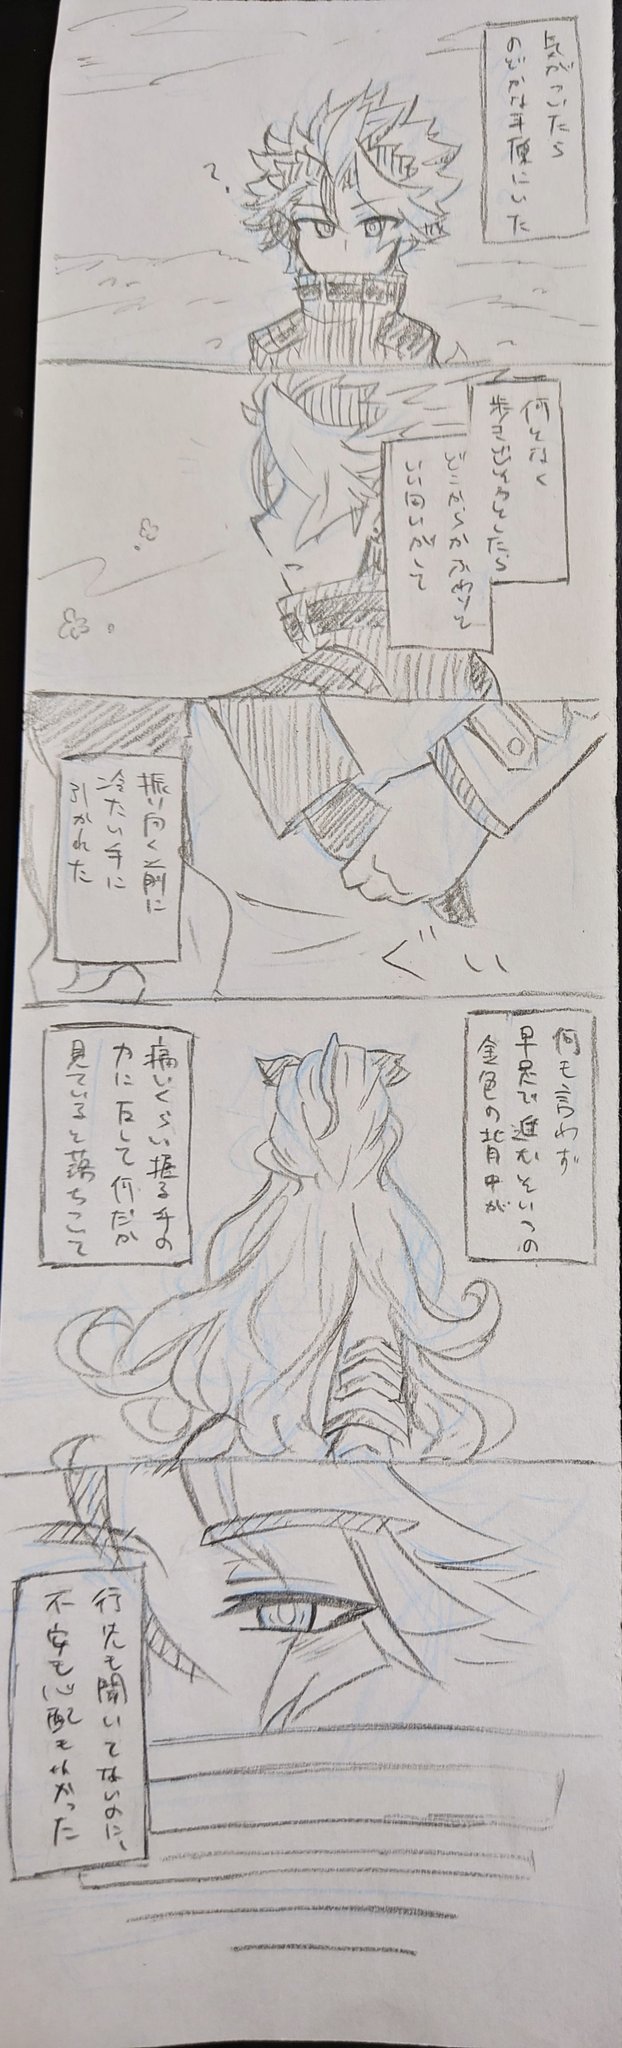 気がついたら
のどかな草原にいた
?
何となく
歩き出そうとしたら
どこからかふわりと
いい匂いがして
振り向く前に
冷たい手に
引かれた
ぐい
何も言わず
早足で進むそいつの
金色の背中が
痛いくらい握る手の
力に反して何だか
見ていると落ちついて
行先も聞いてないのに、
不安も心配もなかった